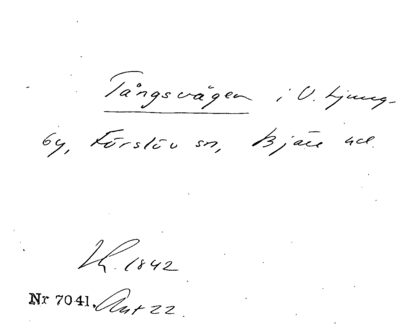 Tångsvägen i V. Ljung-
by, Förslöv sn, Bjäre hd.
Lh. 1842
Nr 7041. Ant 22.